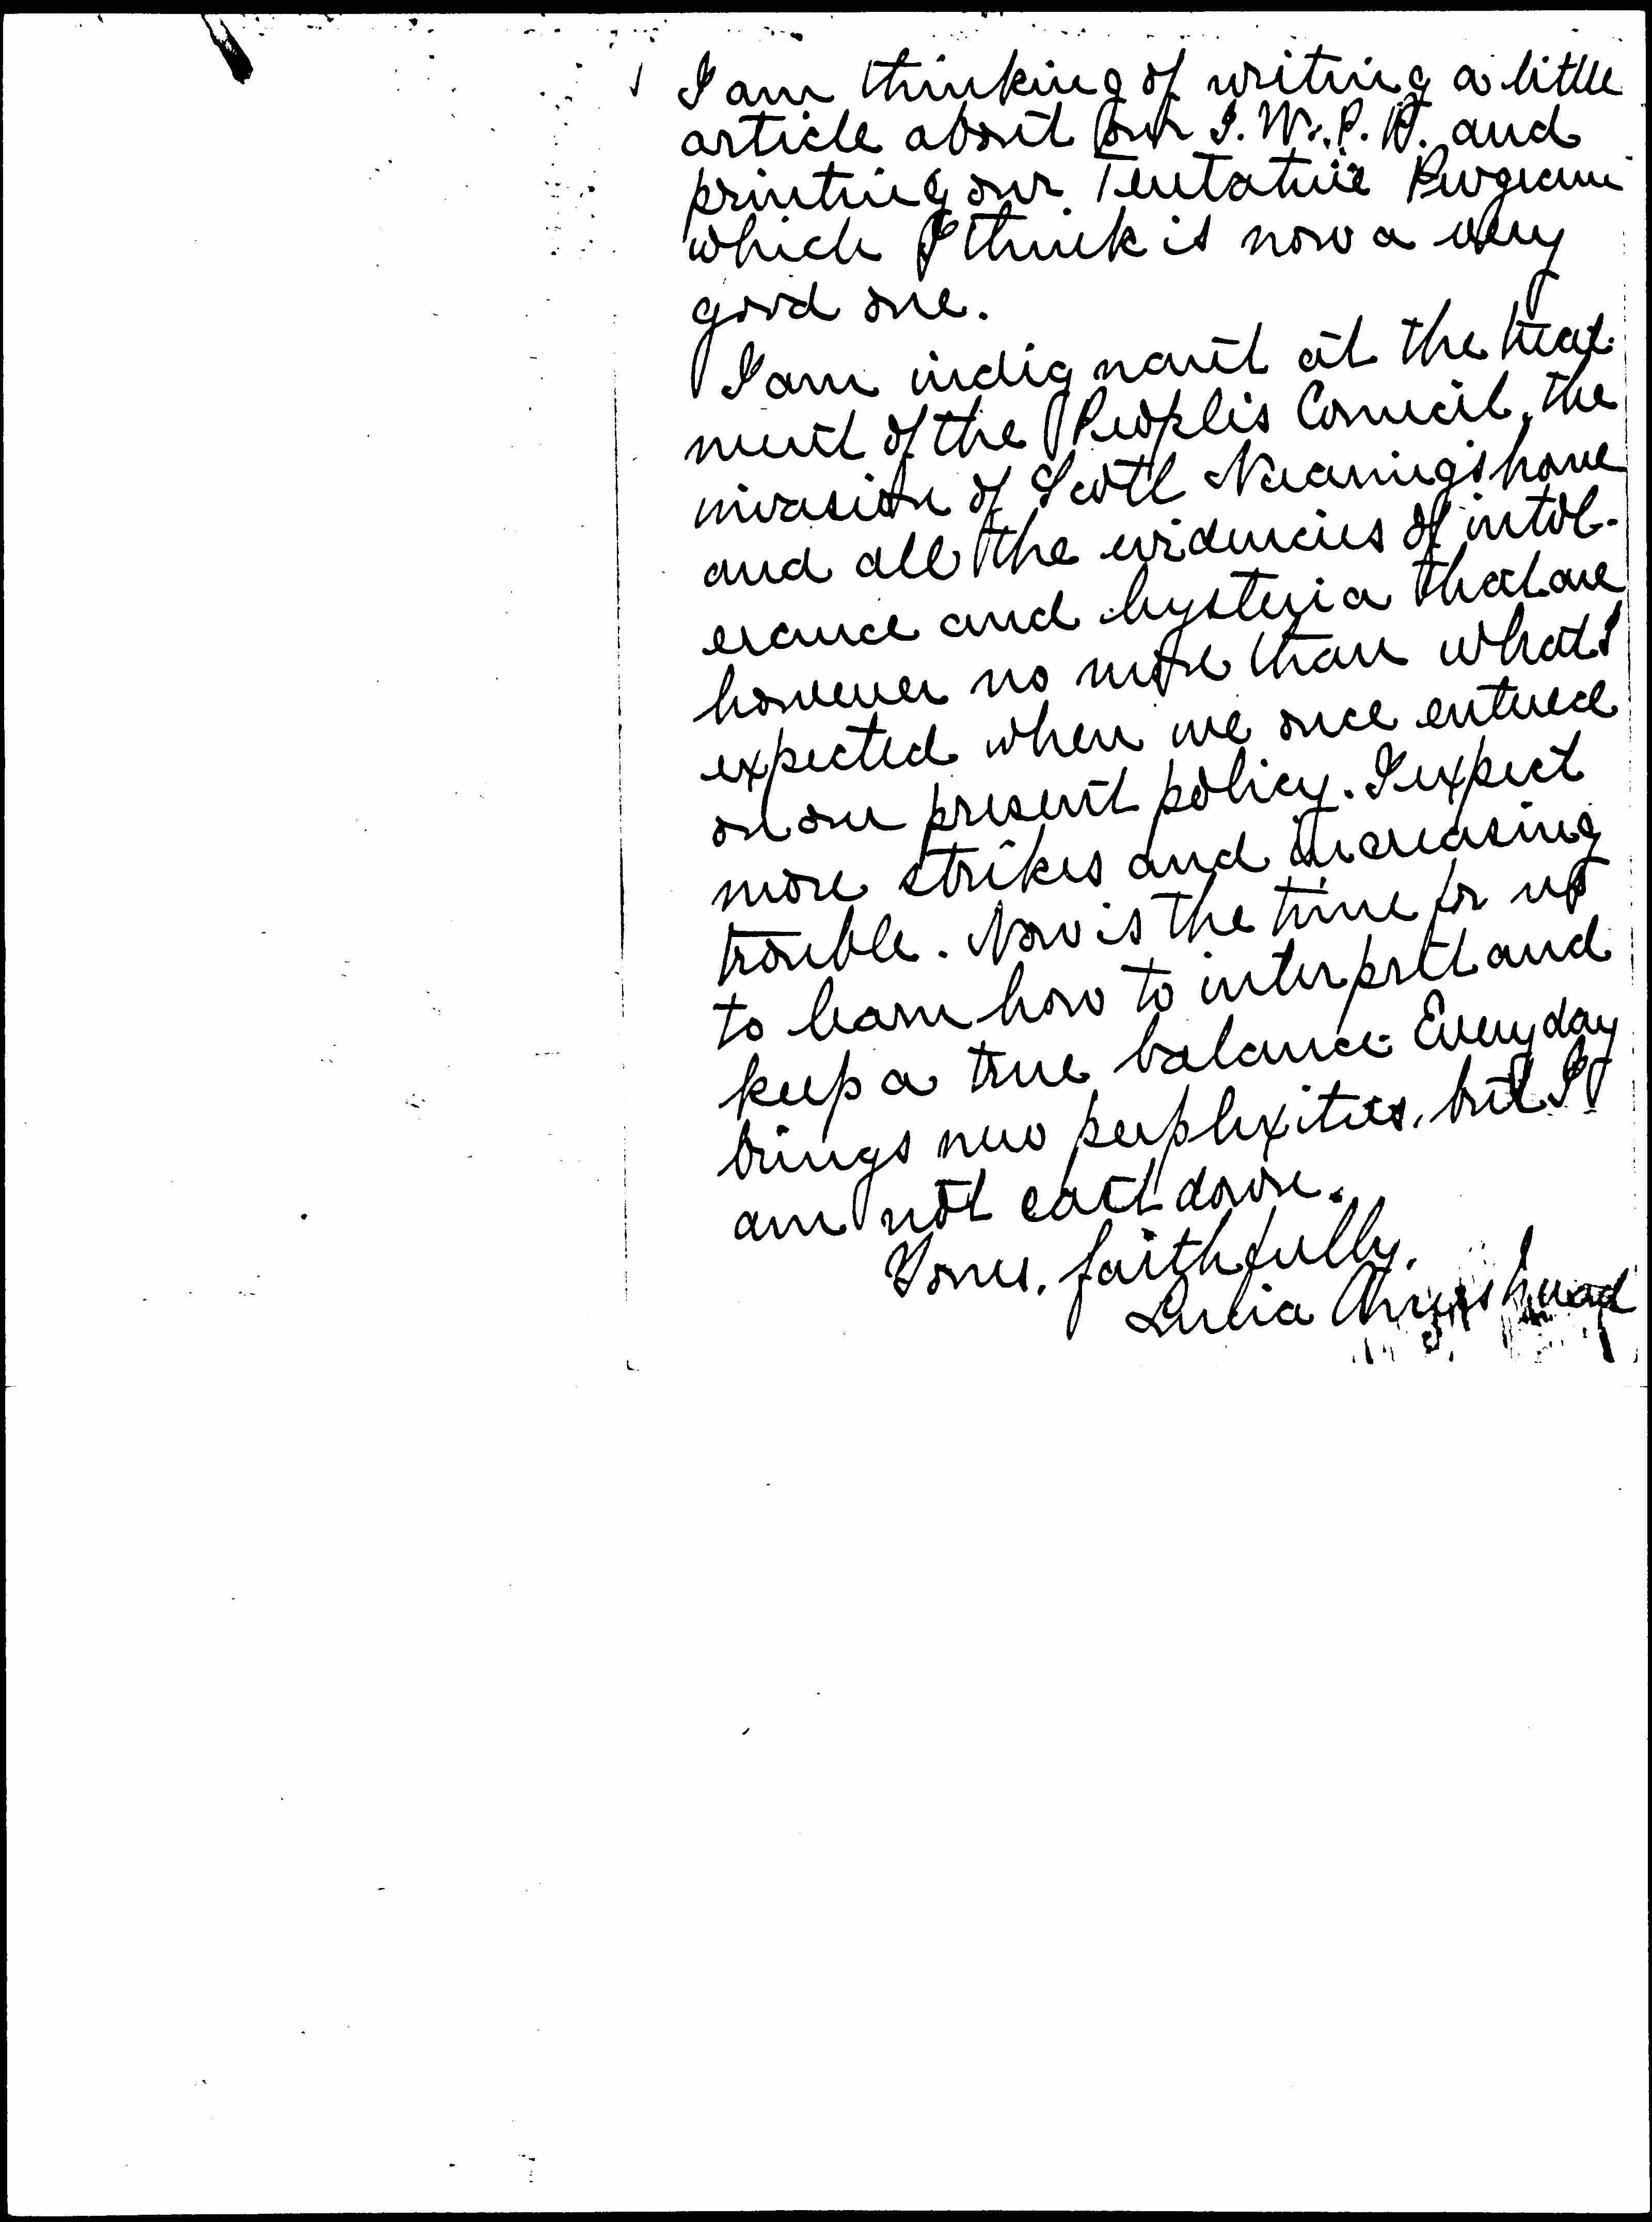 I am thinking of writing a little
article about our I. W. P. P. and
printing our Tentative Program
which I think is now a very
good one.
I am indignant at the treat-
ment of the People's Council, the
invasion of Scott Nearing's home
and all the evidences of intol-
erance and hysteria that are
however no more than what I
expected when we once entered
on our present policy. I expect
more strikes and increasing
trouble. Now is the time for us
to learn how to interpret and
keep a true balance. Every day
brings new perplexities, but I
am not cast down.
Yours, faithfully,
Lucia Ames Mead